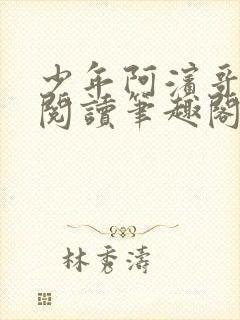 少年阿濱哥
閱讀筆趣閣
林秀濤